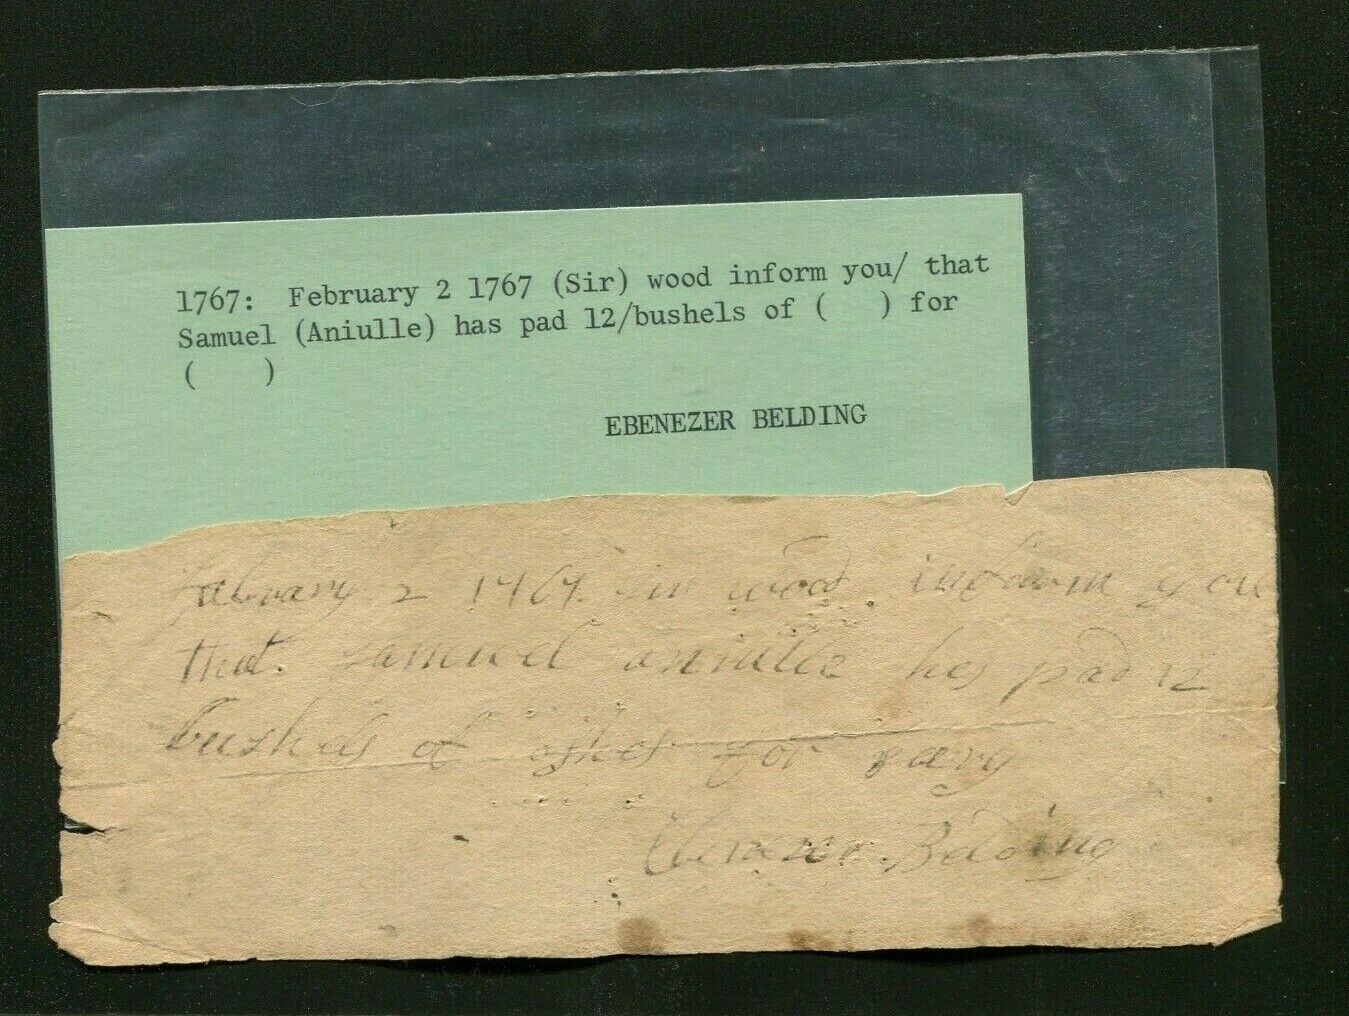 1767: February 2 1767 (Sir) wood inform you/ that
Samuel (Aniulle) has pad 12/bushels of ( ) for
( )
EBENEZER BELDING
february 2 1767 Sir wood inform you
that. samuel aniulle has pad 12
bushels of ashes for
Ebenezer Belding